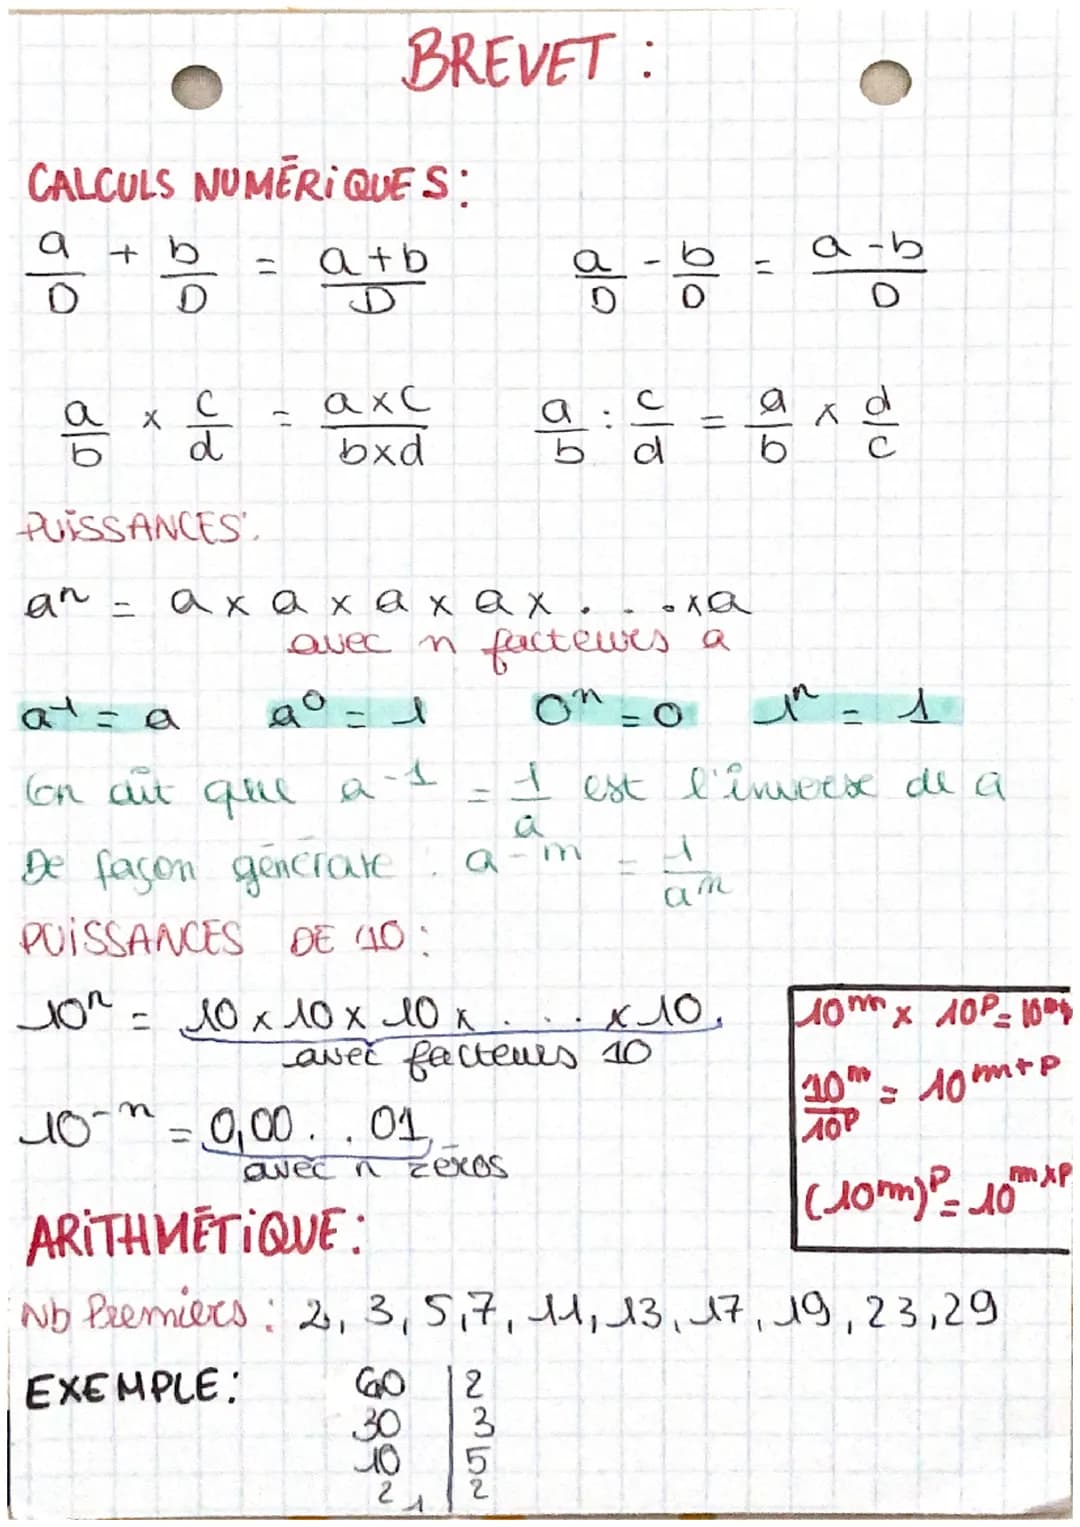 BREVET :
CALCULS NUMÉRIQUES:
a/D + b/D = a+b/D    a/D - b/D = a-b/D
a/b x c/d = axc/bxd    a/b : c/d = a/b x d/c
PUISSANCES:
aⁿ = a x a x a x a x . . . xa
avec n facteurs a
a⁻¹ = a    a⁰ = 1    0ⁿ = 0    1ⁿ = 1
On dit que a⁻¹ = 1/a est l'inverse de a
De façon générale : a⁻ᵐ = 1/aᵐ
PUISSANCES DE 10 :
10ⁿ = 10 x 10 x 10 x . . . x 10,
avec facteurs 10
10⁻ⁿ = 0,00. . 01,
avec n zéros
10ᵐ x 10ᵖ = 10
10ᵐ/10ᵖ = 10ᵐ⁺ᵖ
(10ᵐ)ᵖ = 10ᵐˣᵖ
ARITHMÉTIQUE :
Nb Premiers : 2, 3, 5, 7, 11, 13, 17, 19, 23, 29
EXEMPLE: 60 | 2
30 | 3
10 | 5
2 | 2
1